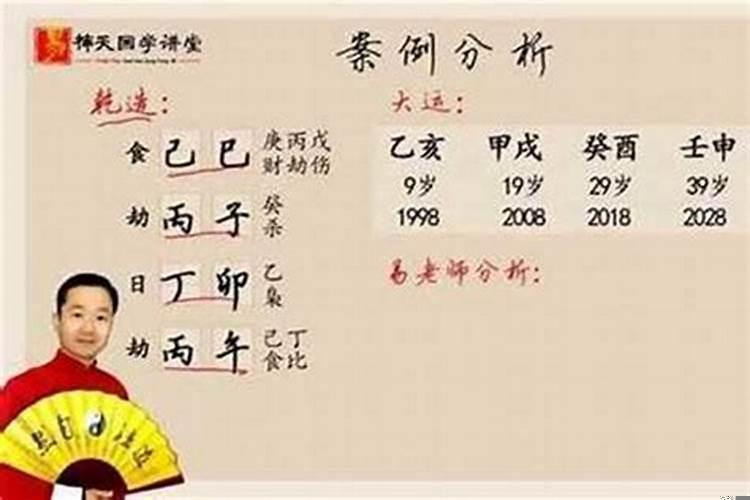 易 神天国学讲堂
案例分析
乾造：
大运：
食 己巳 庚丙戊
财劫伤
劫 丙子 癸
杀
日 丁卯 乙
枭
劫 丙午 己丁
食比
乙亥 甲戌 癸酉 壬申
9岁 19岁 29岁 39岁
1998 2008 2018 2028
易老师分析：